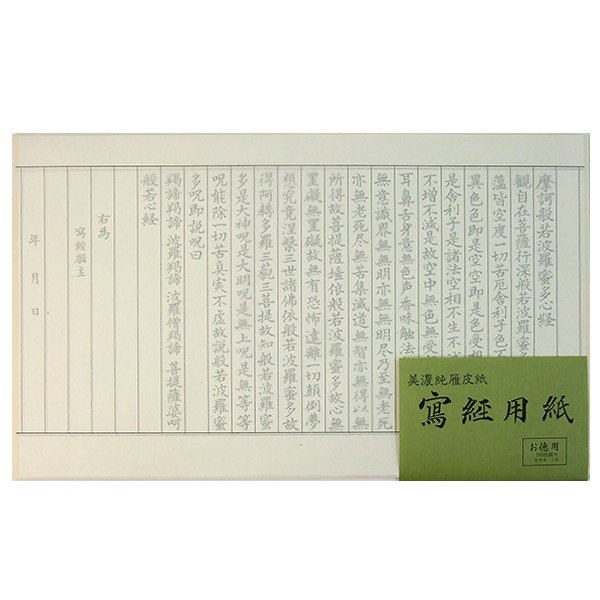 摩訶般若波羅蜜多心経
觀自在菩薩行深般若波羅蜜
蘊皆空度一切苦厄舎利子色不
異色色即是空空即是色受想
是舎利子是諸法空相不生不
不増不減是故空中無色無受
耳鼻舌身意無色声香味触法
無意識界無無明亦無無明尽乃至無老死
亦無老死尽無苦集滅道無智亦無得以無
所得故菩提薩埵依般若波羅蜜多故心無
罣礙無罣礙故無有恐怖遠離一切顛倒夢
想究竟涅槃三世諸佛依般若波羅蜜多故
得阿耨多羅三藐三菩提故知般若波羅蜜
多是大神呪是大明呪是無上呪是無等等
呪能除一切苦真実不虚故説般若波羅蜜
多呪即説呪曰
羯諦羯諦 波羅羯諦 波羅僧羯諦 菩提薩婆呵
般若心経
右為
寫經願主
年 月 日
美濃純雁皮紙
寫経用紙
お徳用